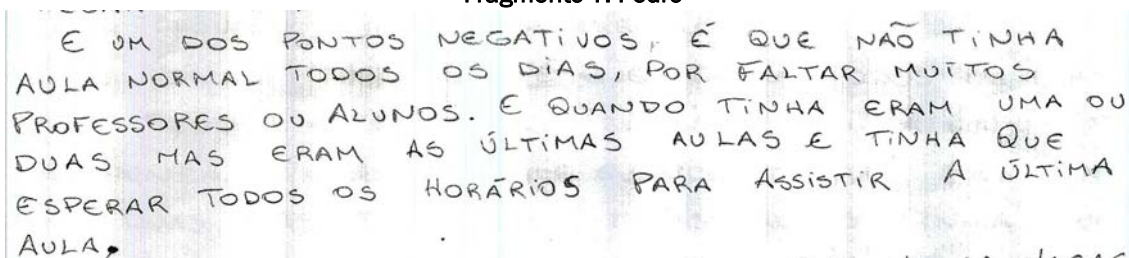 E UM DOS PONTOS NEGATIVOS, É QUE NÃO TINHA
AULA NORMAL TODOS OS DIAS, POR FALTAR MUITOS
PROFESSORES OU ALUNOS. E QUANDO TINHA ERAM UMA OU
DUAS MAS ERAM AS ÚLTIMAS AULAS E TINHA QUE
ESPERAR TODOS OS HORÁRIOS PARA ASSISTIR A ÚLTIMA
AULA.